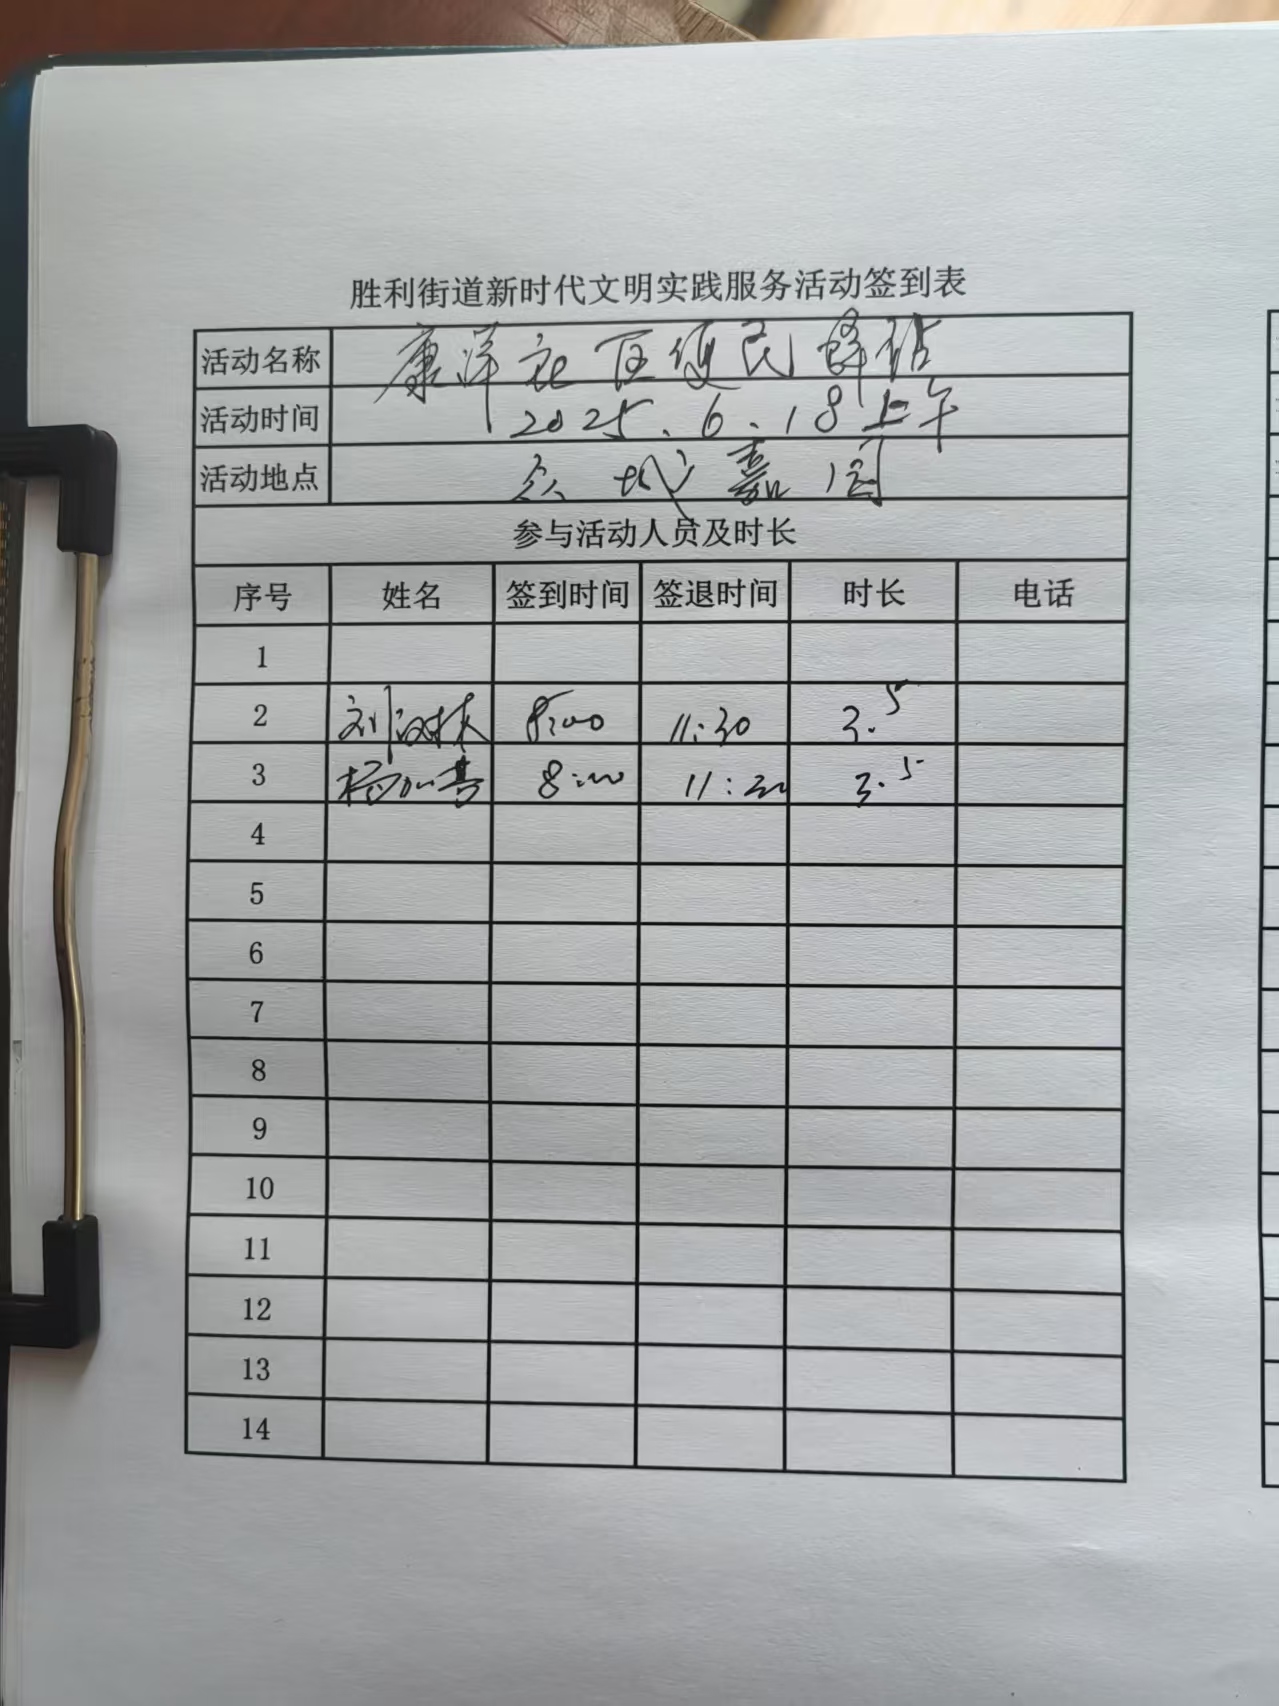 胜利街道新时代文明实践服务活动签到表
活动名称 康洋社区便民驿站
活动时间 2025.6.18上午
活动地点 众城嘉园
参与活动人员及时长
序号 姓名 签到时间 签退时间 时长 电话
1
2 刘汉林 8:00 11:30 3.5
3 8:00 11:30 3.5
4
5
6
7
8
9
10
11
12
13
14